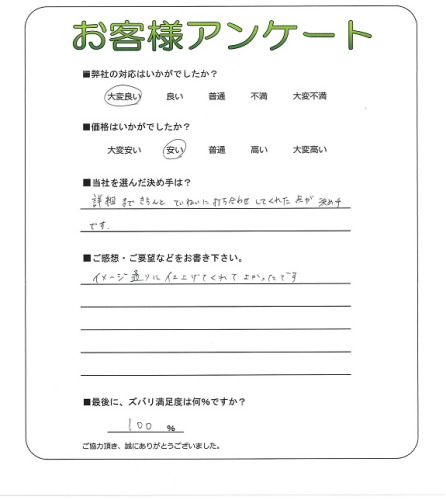 お客様アンケート
■弊社の対応はいかがでしたか?
大変良い 良い 普通 不満 大変不満
■価格はいかがでしたか?
大変安い 安い 普通 高い 大変高い
■当社を選んだ決め手は?
詳細まできちんとていねいに打ち合わせしてくれた点が決め手
です.
■ご感想・ご要望などをお書き下さい。
イメージ通りに仕上げてくれてよかったです
■最後に、ズバリ満足度は何%ですか?
100 %
ご協力頂き、誠にありがとうございました。